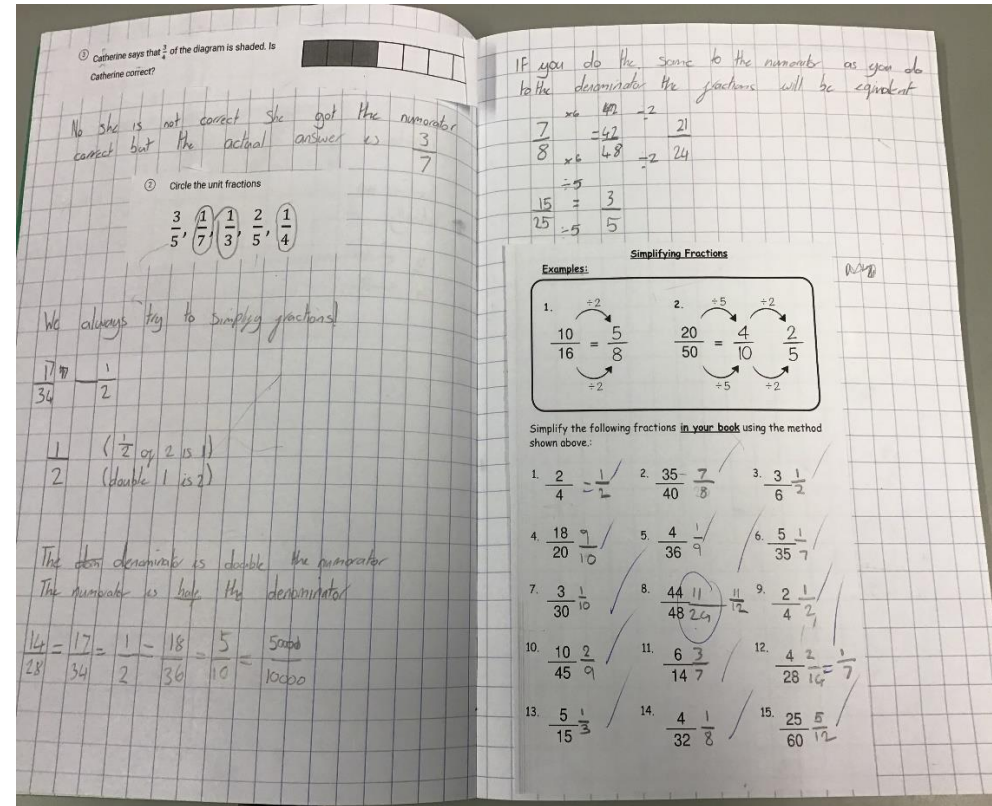 ③ Catherine says that 3/4 of the diagram is shaded. Is
Catherine correct?
No she is not correct she got the numorator
correct but the actual answer is 3/7
② Circle the unit fractions
3/5, 1/7, 1/3, 2/5, 1/4
We always try to simplify fractions!
17/34 1/2
1/2 (1/2 of 2 is 1)
(double 1 is 2)
The denominator is double the numorator
The numorator is half the denominator
14/28 = 17/34 = 1/2 = 18/36 = 5/10 = 5000/10000
If you do the same to the numorator as you do
to the denominator the fractions will be equivalent
×6 ÷2
7/8 = 42/48 21/24
×6 ÷2
÷5
15/25 = 3/5
÷5
Simplifying Fractions
Examples:
1. ÷2 2. ÷5 ÷2
10/16 = 5/8 20/50 = 4/10 2/5
÷2 ÷5 ÷2
Simplify the following fractions in your book using the method
shown above.:
1. 2/4 = 1/2 2. 35/40 7/8 3. 3/6 1/2
4. 18/20 9/10 5. 4/36 1/9 6. 5/35 1/7
7. 3/30 1/10 8. 44/48 11/24 11/12 9. 2/4 1/2
10. 10/45 2/9 11. 6/14 3/7 12. 4/28 2/14 = 1/7
13. 5/15 1/3 14. 4/32 1/8 15. 25/60 5/12